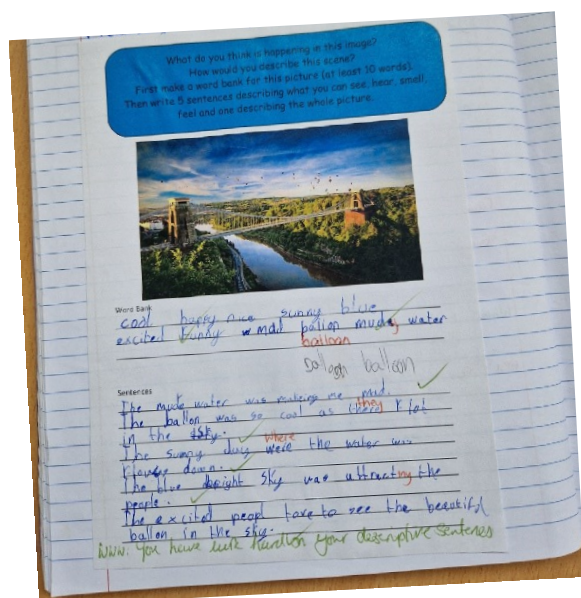 What do you think is happening in this image?
How would you describe this scene?
First make a word bank for this picture (at least 10 words).
Then write 5 sentences describing what you can see, hear, smell,
feel and one describing the whole picture.
Word Bank
cool happy nice sunny blue
excited funny water
balloon
balloon
Sentences
The mude water was making me mud.
The ballon was so cool as they
in the sky.
where
The sunny day were the water was
down.
The blue bright sky was attracting the
people.
The excited peopl to see the beautifl
ballon in the sky.
WWW: You have work hard on your descriptive sentences